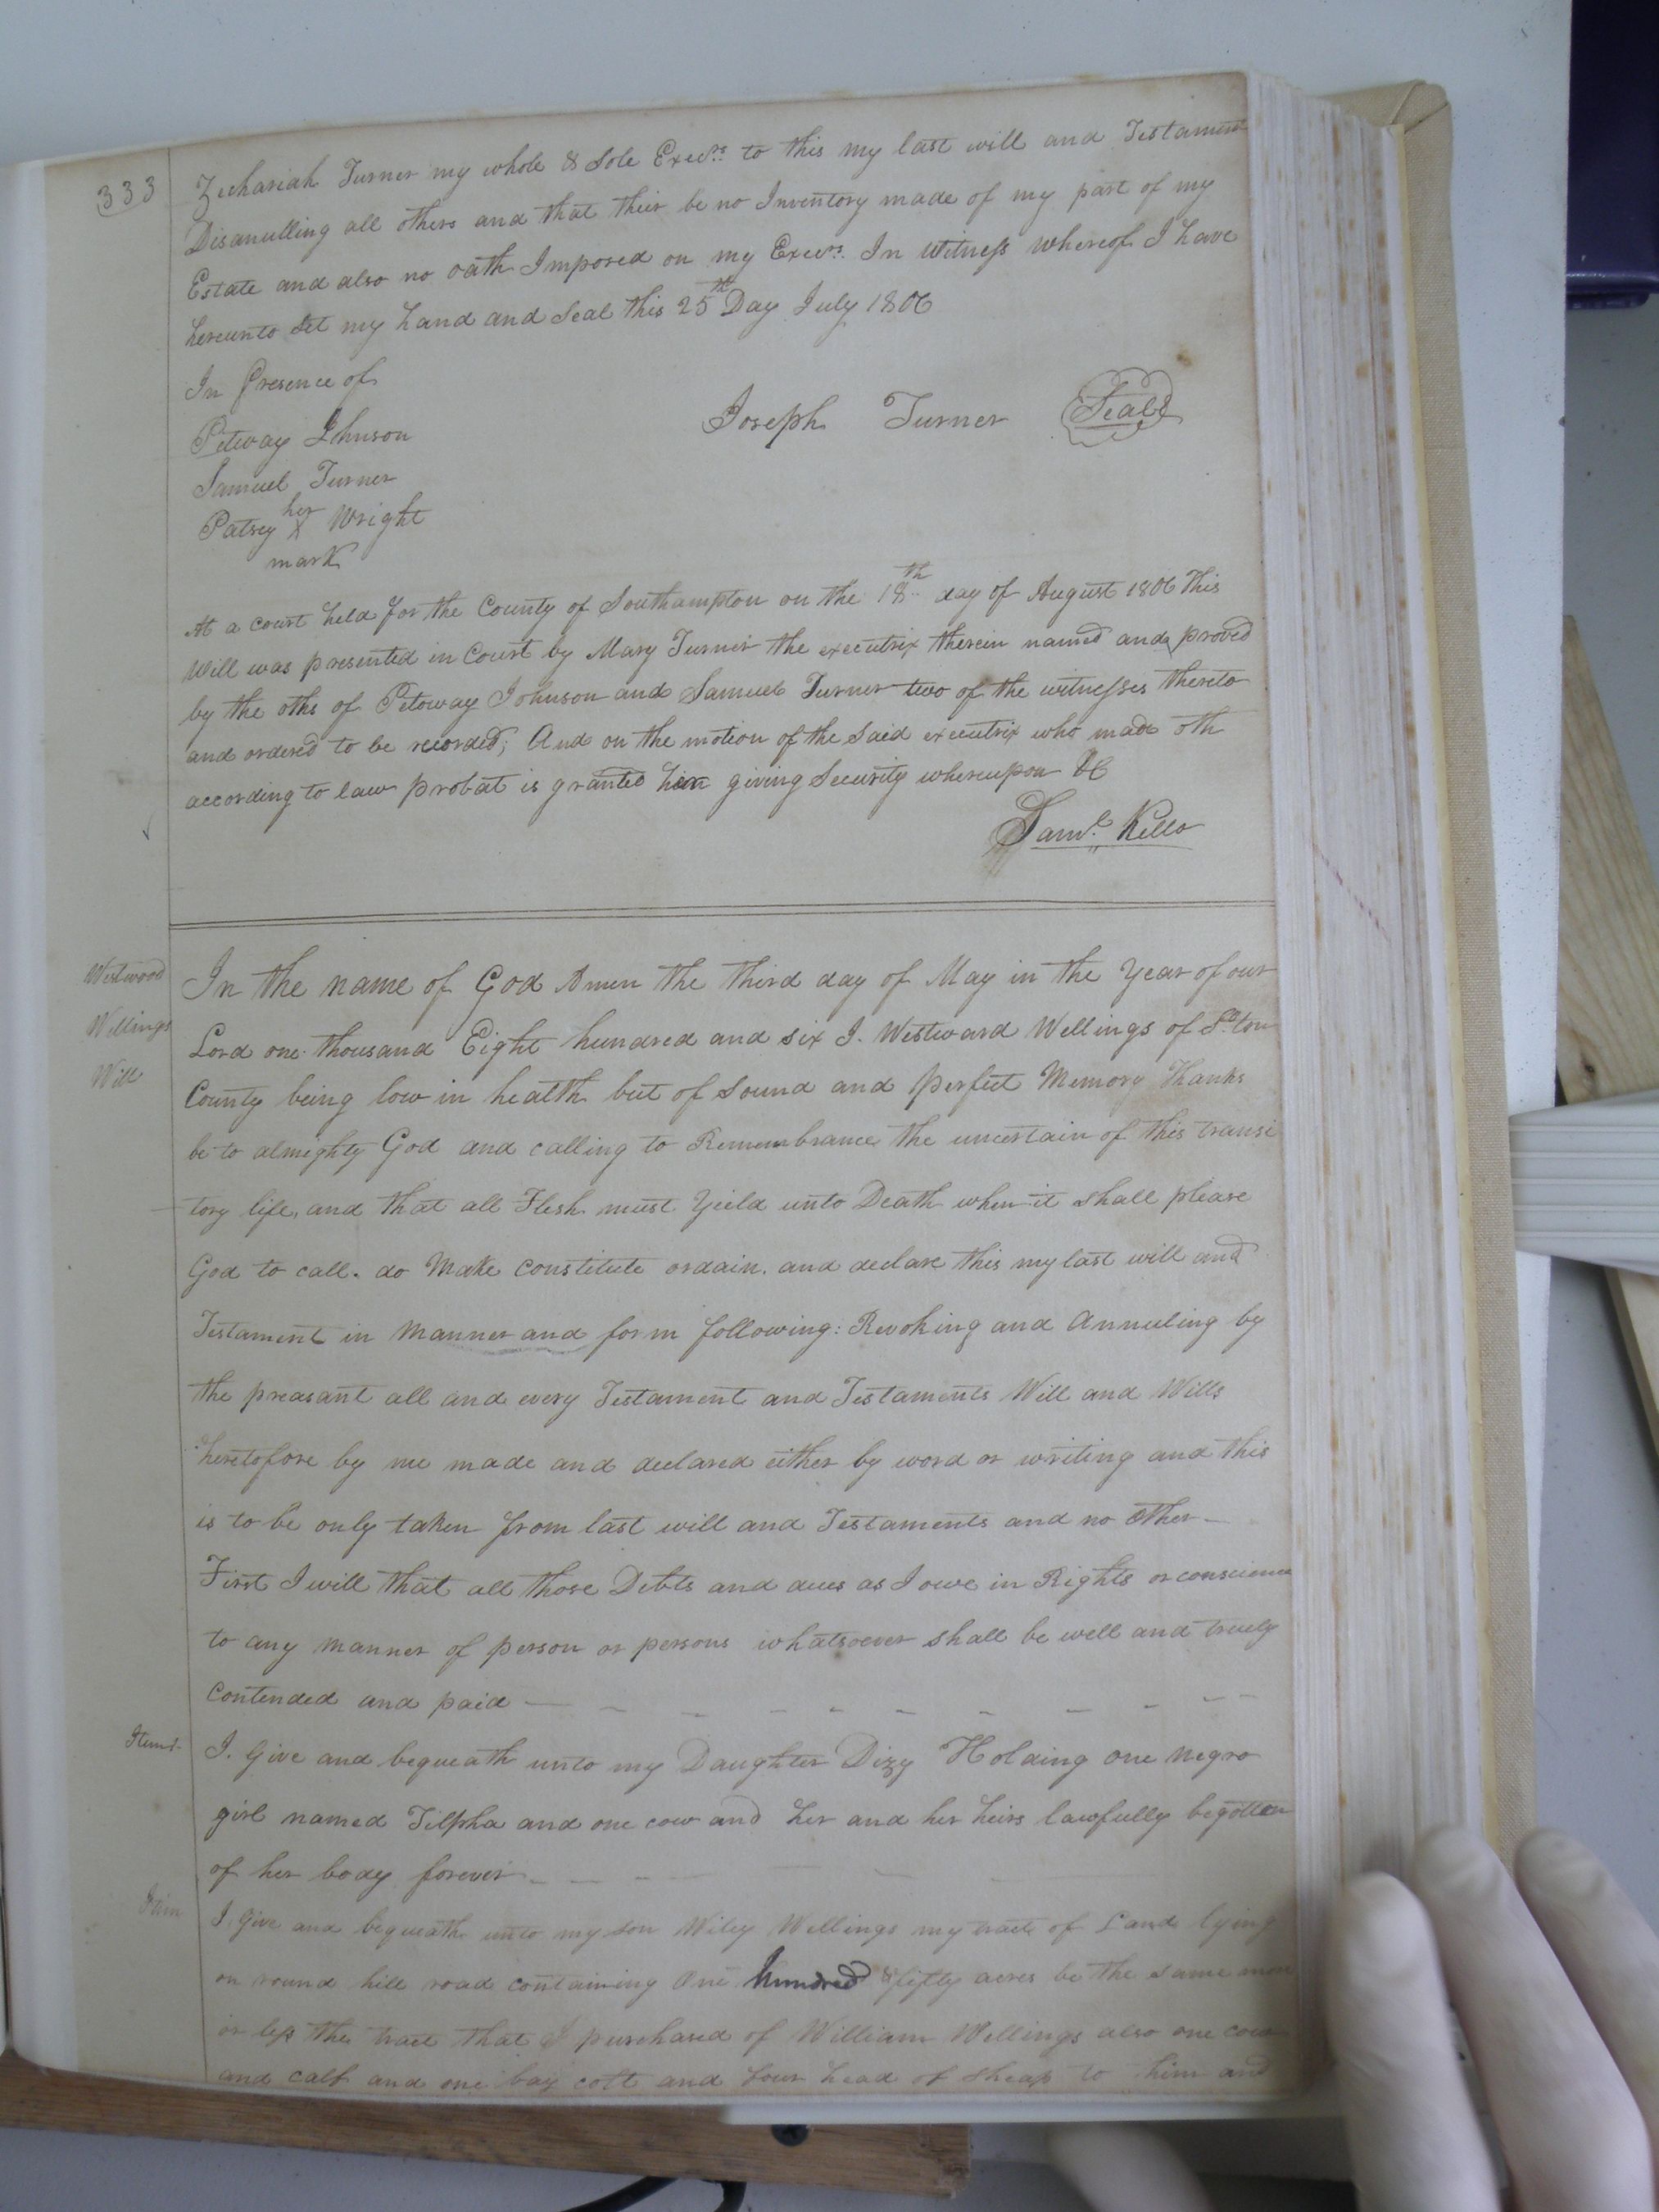 333
Zechariah Turner my whole & Sole Execrs to this my last will and Testament
Disanulling all others and that their be no Inventory made of my part of my
Estate and also no oath Imposed on my Execrs. In Witness whereof I have
hereunto Set my hand and Seal this 25th Day July 1806
In Presence of
Joseph Turner Seal
Petway Johnson
Samuel Turner
Patsey her X Wright
mark
At a court held for the County of Southampton on the 18th day of August 1806 This
Will was presented in Court by Mary Turner the executrix therein named and proved
by the oths of Petoway Johnson and Samuel Turner two of the witnesses thereto
and ordered to be recorded; And on the motion of the said executrix who made oth
according to law probat is granted giving Security whereupon &C
Saml. Kello
Westwood
Wellings
Will
In the name of God Amen the third day of May in the Year of our
Lord one thousand Eight hundred and six I. Westward Wellings of So.ton
County being low in health but of Sound and perfect Memory Thanks
be to almighty God and calling to Remembrance the uncertain of this transi
tory life, and that all Flesh must Yield unto Death when it shall please
God to call. do Make Constitute ordain. and declare this my last will and
Testament in Manner and form following: Revoking and Annuling by
the preasant all and every Testament and Testaments Will and Wills
heretofore by me made and declared either by word or writing and this
is to be only taken from last will and Testaments and no other
First I will that all those Debts and dues as I owe in Rights or conscience
to any manner of person or persons whatsoever shall be well and truely
Contended and paid
Item
I. Give and bequeath unto my Daughter Dizy Holding one negro
girl named Silpha and one cow and her and her heirs lawfully begotten
of her body forever
I. Give and bequeath unto my son Wiley Wellings my tract of Land lying
on round hill road containing One hundred & fifty acres be the same more
or less the tract that I purchased of William Wellings also one cow
and calf and one bay colt and four head of sheap to him and